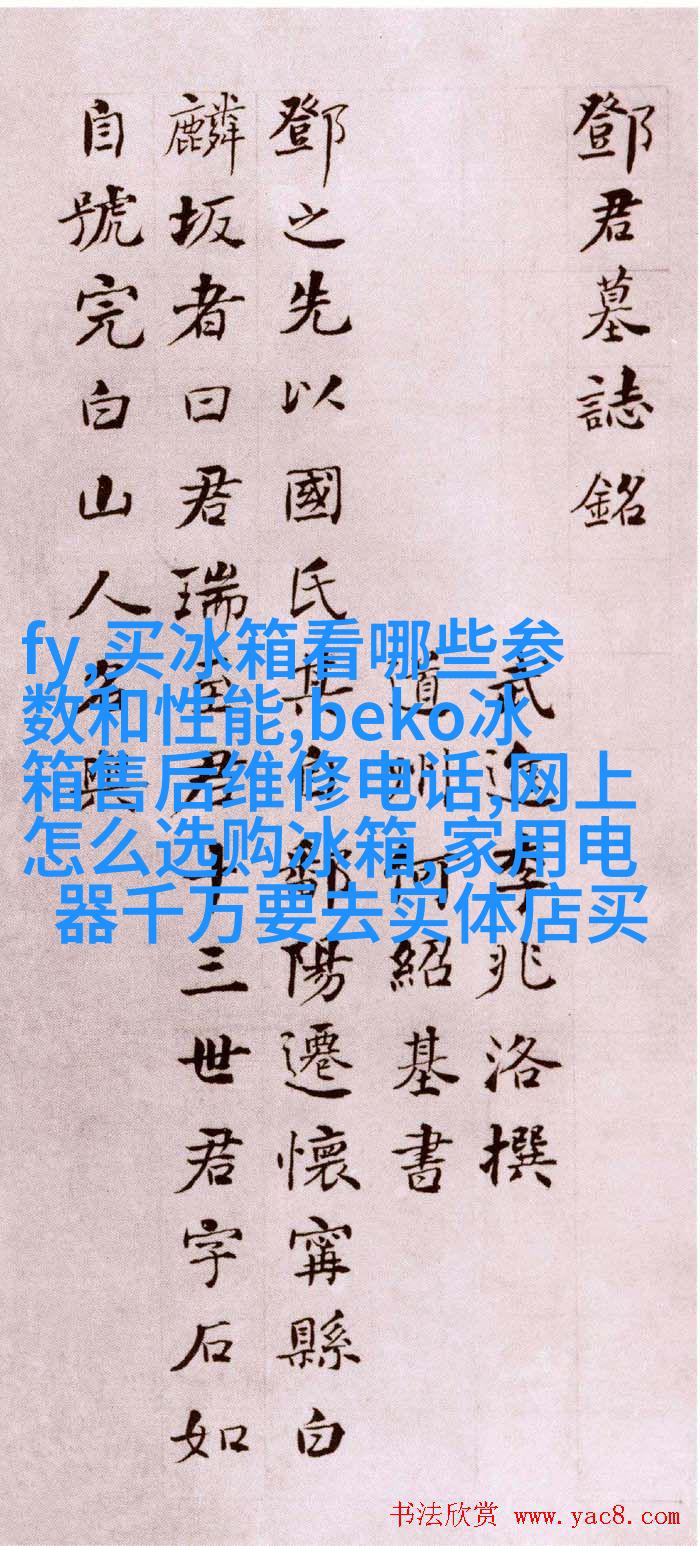 鄧君墓誌銘
武進李兆洛撰
道州何紹基書
鄧之先以國氏其自鄱陽遷懷甯縣白
麟坂者曰君瑞至君十三世君字石如
自號完白山人
fy,买冰箱看哪些参
数和性能,beko冰
箱售后维修电话,网上
怎么选购冰箱,家用电
器千万要去实体店买
书法欣赏 www.yac8.com